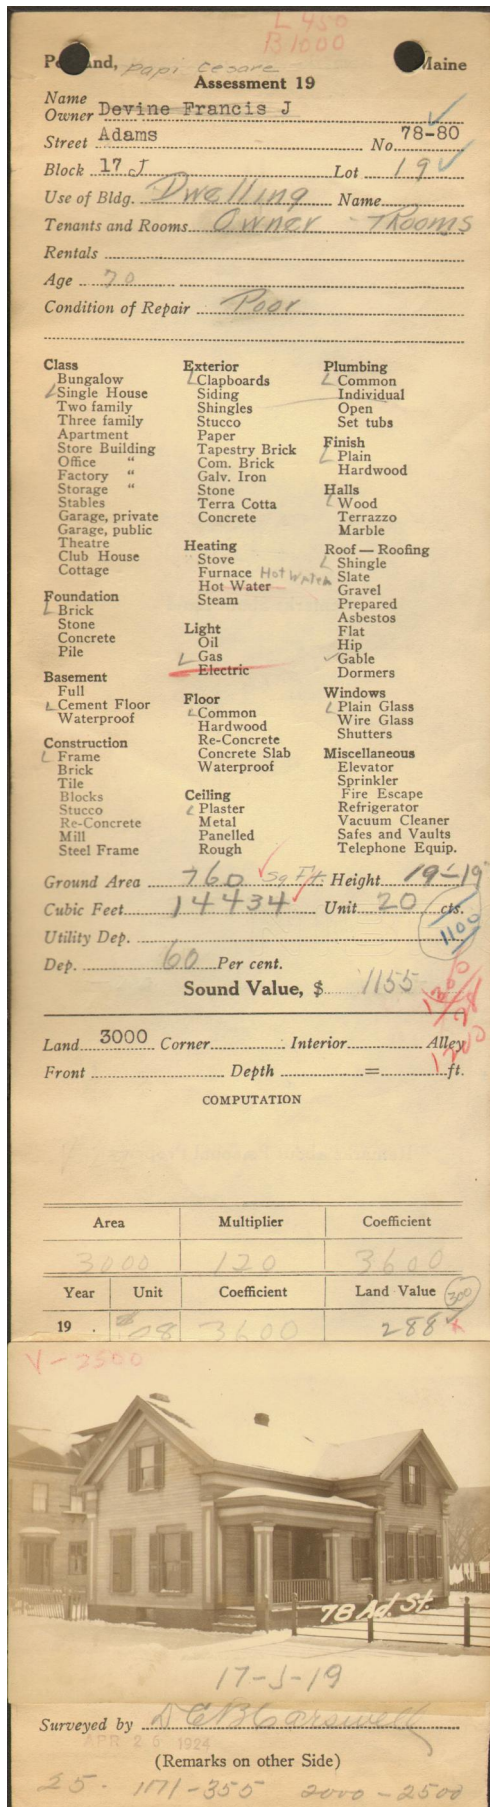 L 450
B 1000
Portland, Papi Cesare Maine
Assessment 19
Name
Owner Devine Francis J
Street Adams No. 78-80
Block 17 J Lot 19
Use of Bldg. Dwelling Name
Tenants and Rooms Owner - 7 Rooms
Rentals
Age 70
Condition of Repair Poor
Class
Bungalow
Single House
Two family
Three family
Apartment
Store Building
Office "
Factory "
Storage "
Stables
Garage, private
Garage, public
Theatre
Club House
Cottage
Foundation
Brick
Stone
Concrete
Pile
Basement
Full
Cement Floor
Waterproof
Construction
Frame
Brick
Tile
Blocks
Stucco
Re-Concrete
Mill
Steel Frame
Exterior
Clapboards
Siding
Shingles
Stucco
Paper
Tapestry Brick
Com. Brick
Galv. Iron
Stone
Terra Cotta
Concrete
Heating
Stove
Furnace Hot Water
Hot Water
Steam
Light
Oil
Gas
Electric
Floor
Common
Hardwood
Re-Concrete
Concrete Slab
Waterproof
Ceiling
Plaster
Metal
Panelled
Rough
Plumbing
Common
Individual
Open
Set tubs
Finish
Plain
Hardwood
Halls
Wood
Terrazzo
Marble
Roof — Roofing
Shingle
Slate
Gravel
Prepared
Asbestos
Flat
Hip
Gable
Dormers
Windows
Plain Glass
Wire Glass
Shutters
Miscellaneous
Elevator
Sprinkler
Fire Escape
Refrigerator
Vacuum Cleaner
Safes and Vaults
Telephone Equip.
Ground Area 760 Sq Ft. Height 19'-19"
Cubic Feet 14434 Unit 20 cts.
Utility Dep. 1100
Dep. 60 Per cent.
Sound Value, $ 1155
1200
Land 3000 Corner Interior Alley
Front Depth = ft.
COMPUTATION
Area Multiplier Coefficient
3000 120 3600
Year Unit Coefficient Land Value 300
19 . 08 3600 288
V-3500
78 Ad. St.
17-J-19
Surveyed by
APR 26 1924
(Remarks on other Side)
25. 171-355 2000-2500